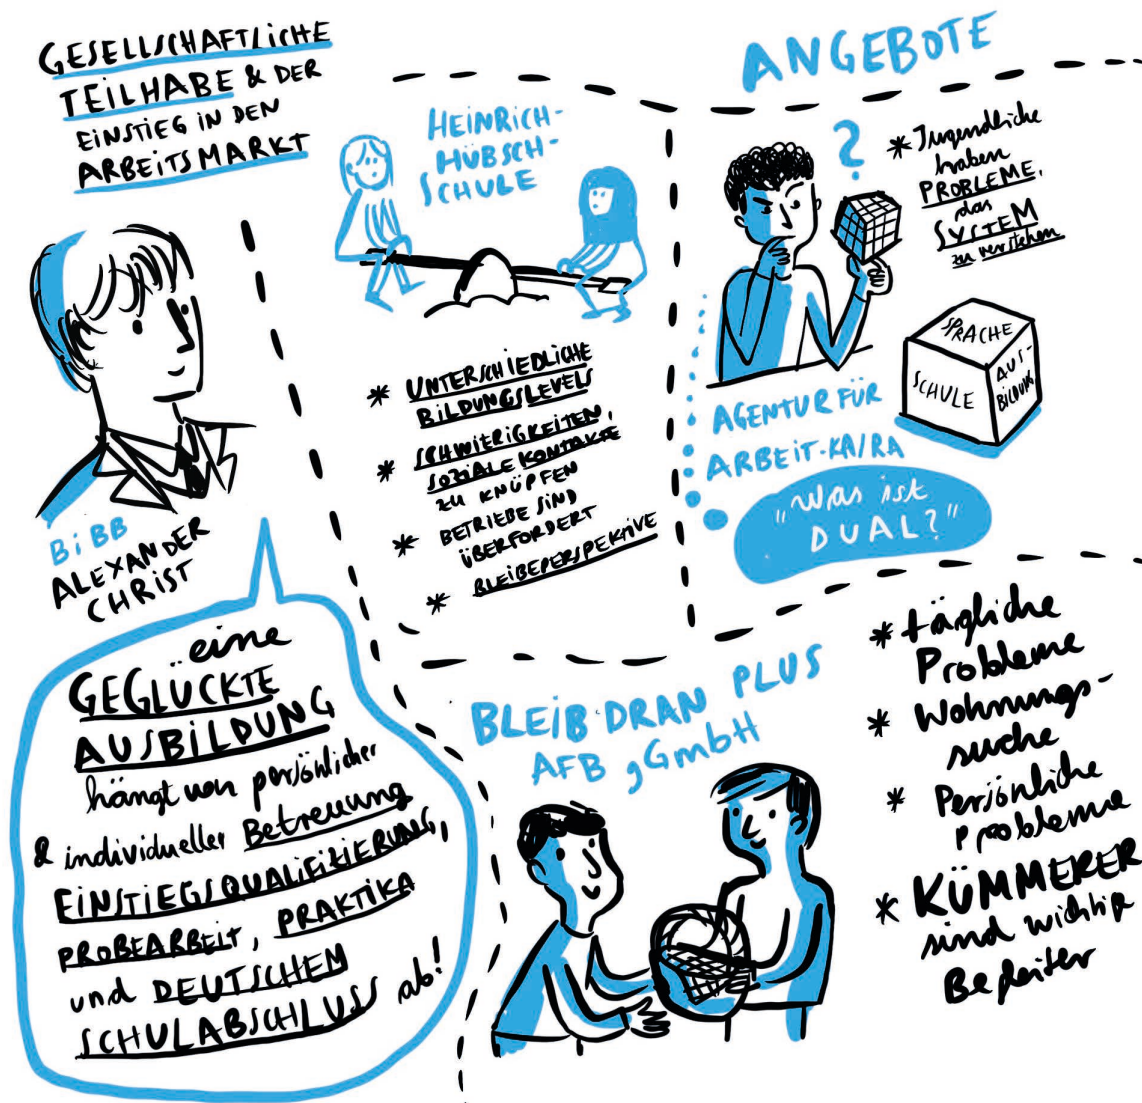 GESELLSCHAFTLICHE
TEILHABE & DER
EINSTIEG IN DEN
ARBEITSMARKT
BiBB
ALEXANDER
CHRIST
eine
GEGLÜCKTE
AUSBILDUNG
hängt von persönlicher
& individueller Betreuung,
EINSTIEGSQUALIFIZIERUNG,
PROBEARBEIT, PRAKTIKA
und DEUTSCHEM
SCHULABSCHLUSS ab!
HEINRICH-
HÜBSCH-
SCHULE
* UNTERSCHIEDLICHE
BILDUNGSLEVELS
* SCHWIERIGKEITEN,
SOZIALE KONTAKTE
ZU KNÜPFEN
* BETRIEBE SIND
ÜBERFORDERT
* BLEIBEPERSPEKTIVE
ANGEBOTE
?
* Jugendliche
haben
PROBLEME,
das
SYSTEM
zu verstehen
SPRACHE
SCHULE
AUS-
BILDUNG
AGENTUR FÜR
ARBEIT-KA/RA
"Was ist
DUAL?"
BLEIB DRAN PLUS
AFB gGmbH
* tägliche
Probleme
* Wohnungs-
suche
* Persönliche
Probleme
* KÜMMERER
sind wichtige
Begleiter